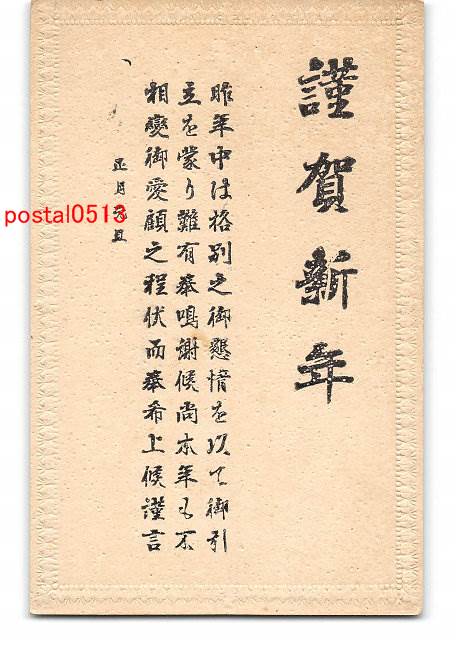 謹賀新年
昨年中は格別之御懇情を以て御引
立を蒙り難有奉鳴謝候尚本年も不
相變御愛顧之程伏而奉希上候謹言
正月元旦
postal0513